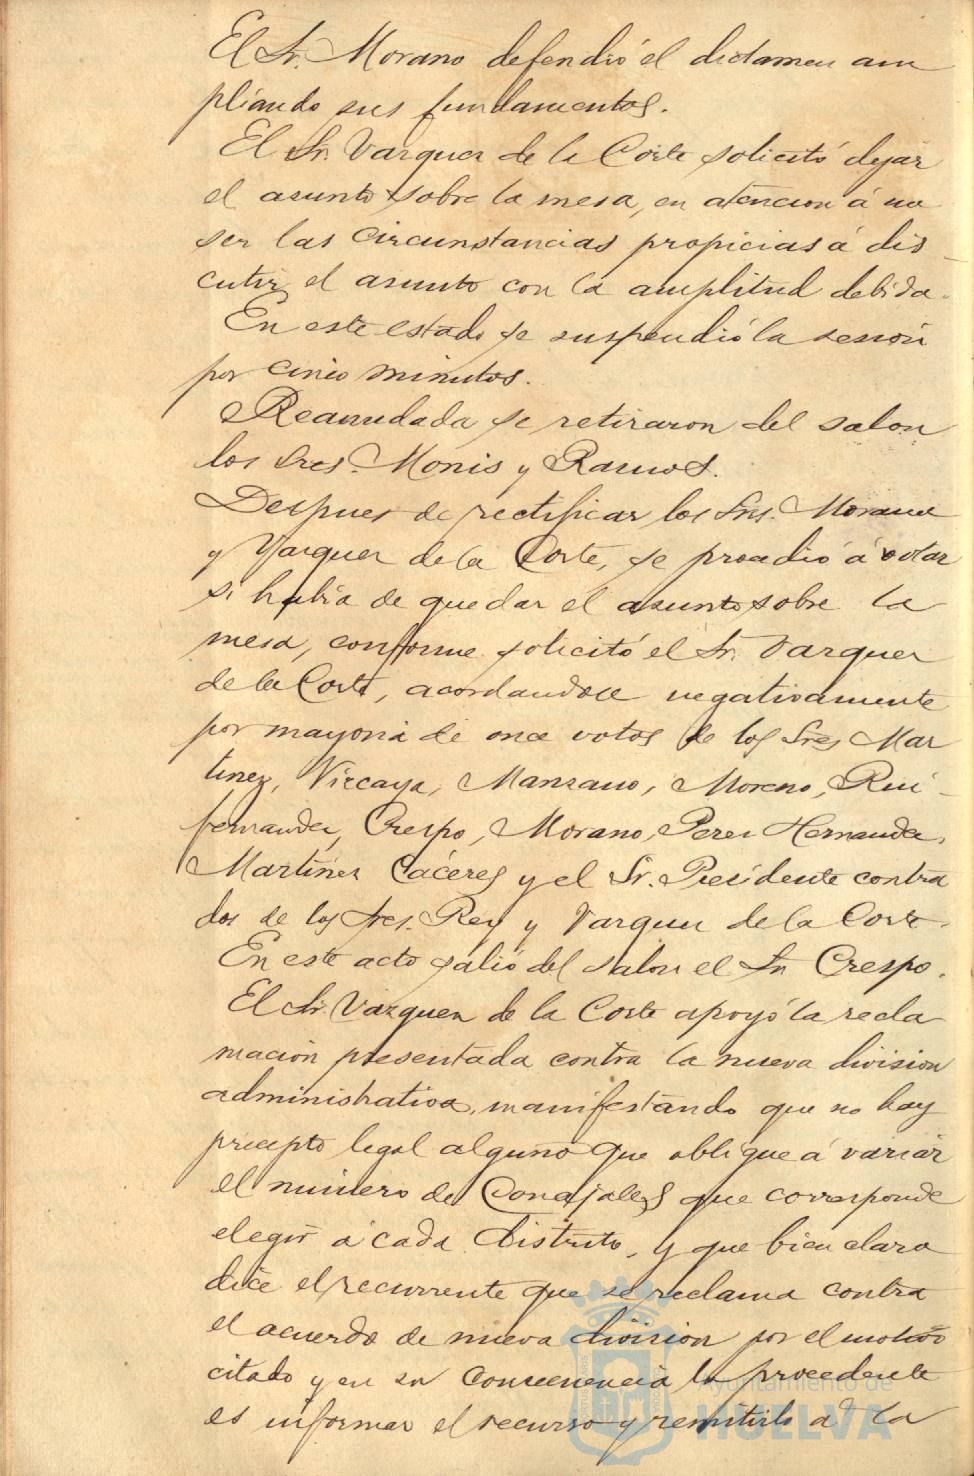 El Sr. Morano defendió el dictamen am
pliando sus fundamentos.
El Sr. Vazquez de la Corte solicitó dejar
el asunto sobre la mesa, en atencion á no
ser las circunstancias propicias á dis
cutir el asunto con la amplitud debida.
En este estado se suspendió la sesión
por cinco minutos.
Reanudada se retiraron del salon
los Sres. Monis y Ramos.
Despues de rectificar los Sres. Morano
y Vazquez de la Corte, se procedió á votar
si habia de quedar el asunto sobre la
mesa, conforme solicitó el Sr. Vazquez
de la Corte, acordandose negativamente
por mayoria de once votos de los Sres Mar
tinez, Vizcaya, Manzano, Moreno, Rui
fernandez, Crespo, Morano, Perez Hernandez,
Martinez Cáceres y el Sr. Presidente contra
dos de los Sres. Rey y Vazquez de la Corte.
En este acto salió del salon el Sr Crespo.
El Sr. Vazquez de la Corte apoyó la recla
mación presentada contra la nueva division
administrativa, manifestando que no hay
precepto legal alguno que obligue á variar
el número de Concejales que corresponde
elegir á cada distrito, y que bien claro
dice el recurrente que se reclama contra
el acuerdo de nueva división por el motivo
citado y en su consecuencia lo procedente
es informar el recurso y remitirlo á la
Ayuntamiento de
HUELVA